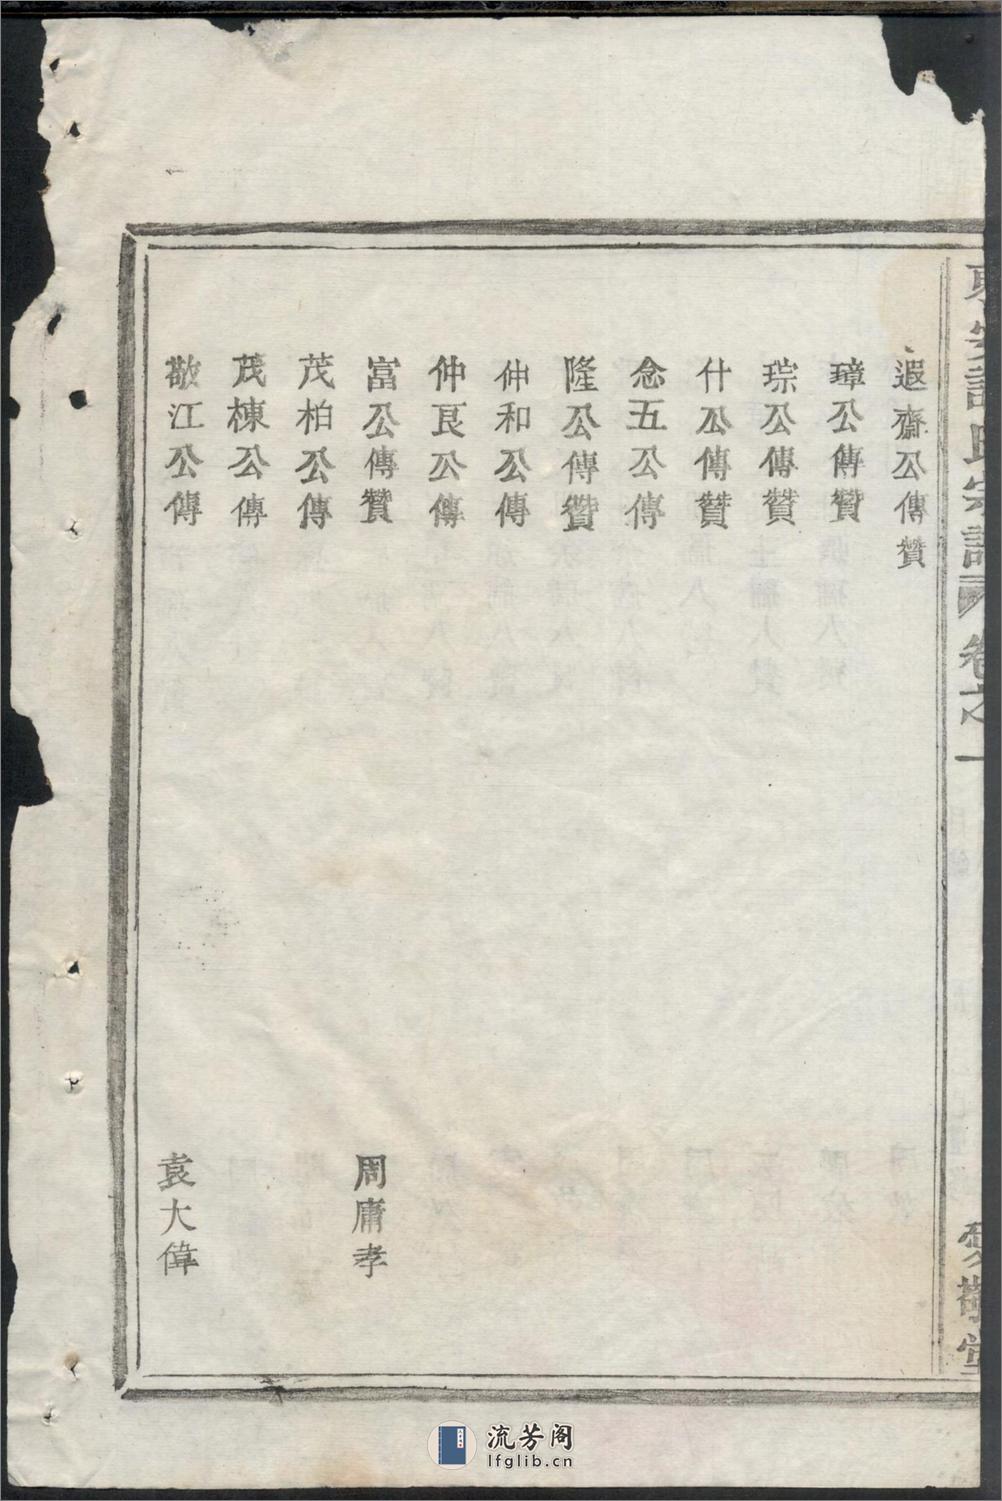 宗譜
卷之一
愛敬堂
遐齋公傳贊
璋公傳贊
琮公傳贊
什公傳贊
念五公傳
隆公傳贊
仲和公傳
仲良公傳
富公傳贊
周庸孝
茂柏公傳
茂棟公傳
敬江公傳
袁大偉
流芳阁
lfglib.cn